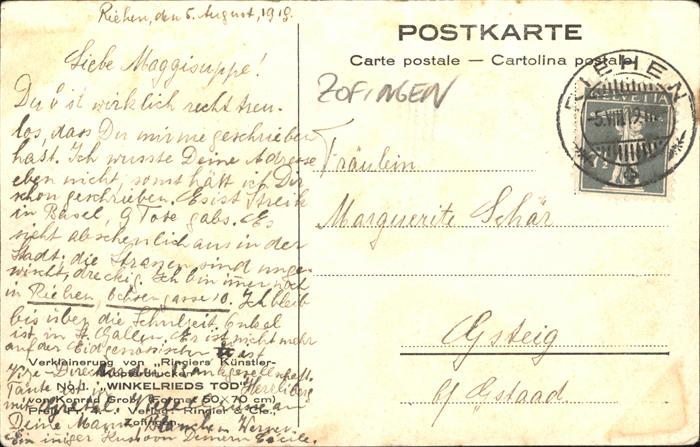 Riehen, den 5. August, 1919.
Liebe Maggisuppe!
Du! 's ist wirklich recht treu-
los, dass Du mir nie geschrieben
hast. Ich wusste Deine Adresse
eben nicht, sonst hätt ich Dir
schon geschrieben. Es ist Streik
in Basel, 9 Tote gabs. Es
sieht abscheulich aus in der
Stadt; die Strassen sind unge-
wischt, dreckig. Ich bin immer noch
in Riehen, Ochsengasse 10. Ich bleib
bis über die Schulzeit. Enkel
ist in St. Gallen. Er ist nicht mehr
auf der Eidgenössischen
ist
Vize-Direktor
Bankgesellschaft.
Tante
Herrliberg
mit
an
Deine Mama
Werner.
Ein inniger Kuss von Deinem Cécile.
Verkleinerung von "Ringiers Künstler-
Kupferdrucken"
No. 1. "WINKELRIEDS TOD"
(von Konrad Grob) (Format 50×70 cm)
Verlag Ringier & Cie.,
Zofingen
POSTKARTE
Carte postale — Cartolina postale
ZOFINGEN
RIEHEN
HELVETIA
Fräulein
Marguerite Schär
Gsteig
b/ Gstaad